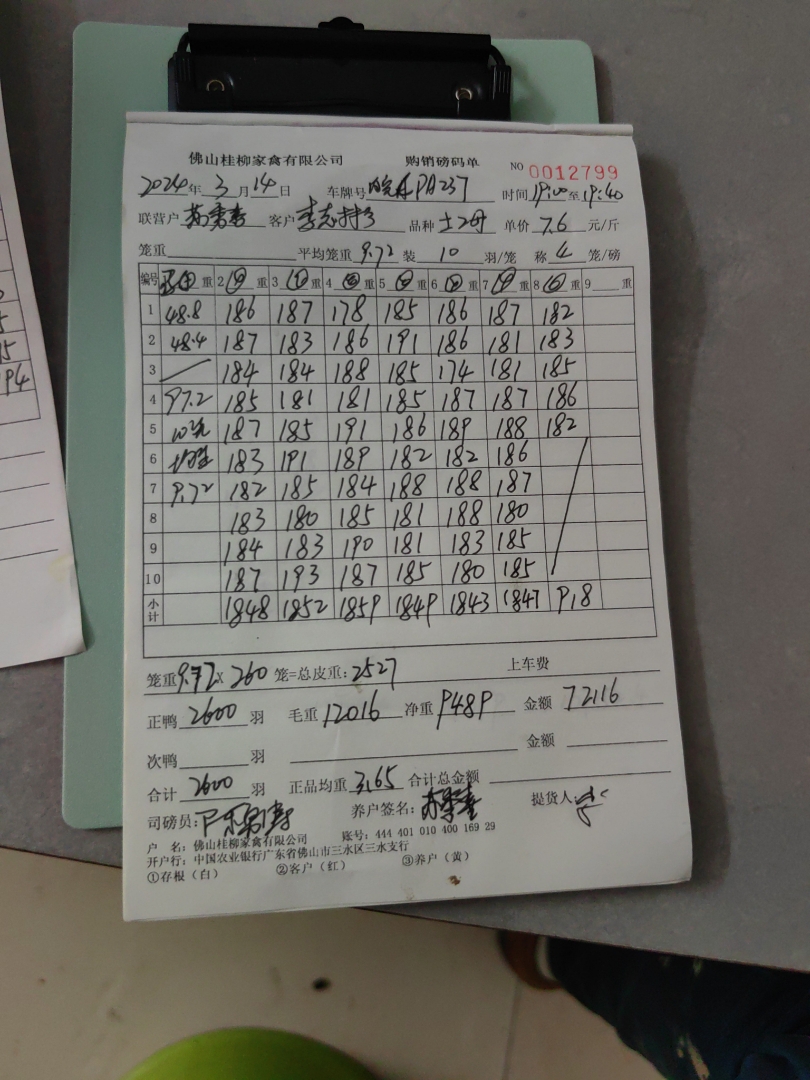 佛山桂柳家禽有限公司 购销磅码单 NO 0012799
2024年3月14日 车牌号 皖APA237 时间19:00至19:40
联营户 客户 李志 品种 土2母 单价 7.6 元/斤
笼重 平均笼重 9.72 装 10 羽/笼 称 4 笼/磅
编号 重 2 重 3 重 4 重 5 重 6 重 7 重 8 重 9 重
1 48.8 186 187 178 185 186 187 182
2 48.4 187 183 186 191 186 181 183
3 184 184 188 185 174 181 185
4 97.2 185 181 181 185 187 187 186
5 10笼 187 185 191 186 189 188 182
6 183 191 189 182 182 186
7 9.72 182 185 184 188 188 187
8 183 180 185 181 188 180
9 184 183 190 181 183 185
10 187 193 187 185 180 185
小计 1848 1852 1859 1849 1843 1847 918
笼重9.72×260笼=总皮重:2527 上车费
正鸭 2600 羽 毛重 12016 净重 9489 金额 72116
次鸭 羽 金额
合计 2600 羽 正品均重 3.65 合计总金额
司磅员: 养户签名: 提货人:
户 名:佛山桂柳家禽有限公司 账号:444 401 010 400 169 29
开户行:中国农业银行广东省佛山市三水区三水支行
①存根(白) ②客户(红) ③养户(黄)
94